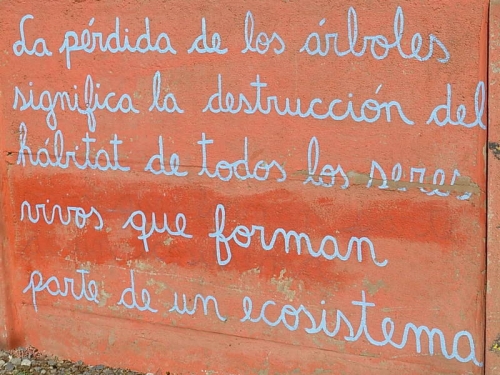 La pérdida de los árboles
significa la destrucción del
hábitat de todos los seres
vivos que forman
parte de un ecosistema